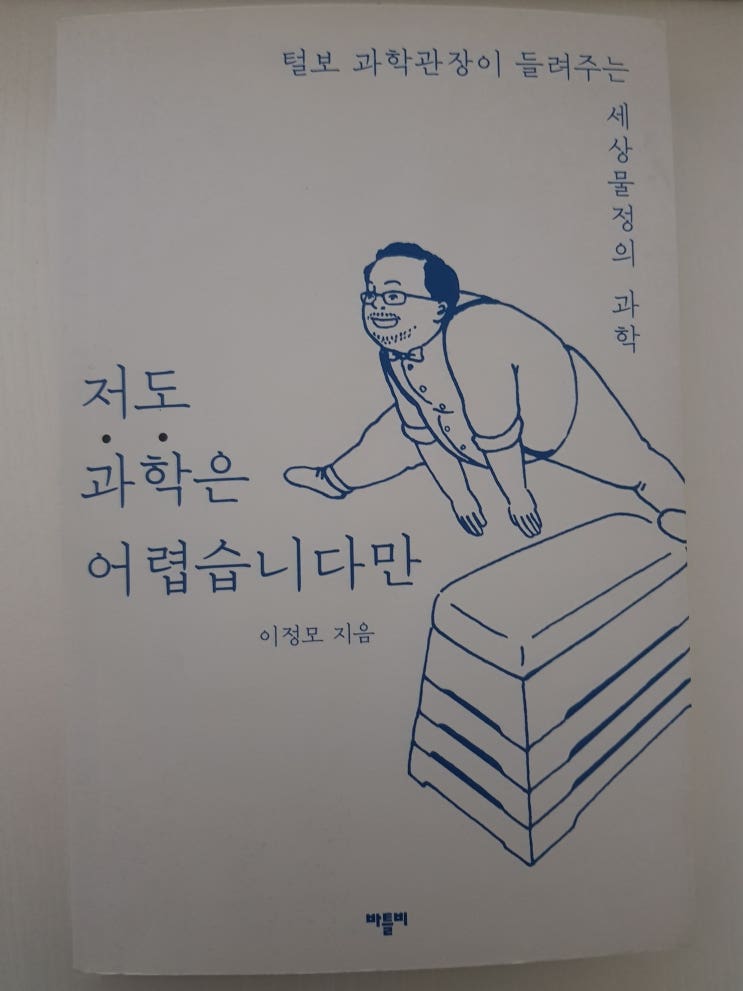 털보 과학관장이 들려주는
세상물정의 과학
저도
과학은
어렵습니다만
이정모 지음
바틀비